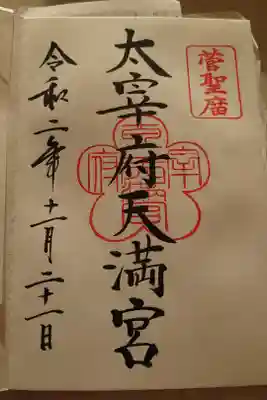 菅聖廟
太宰府天満宮
令和二年十一月二十一日